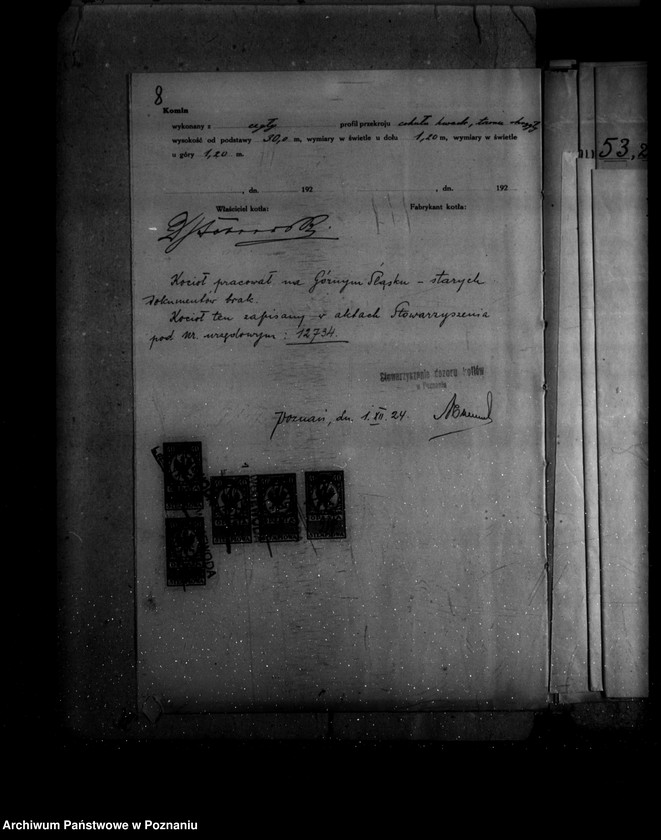 8
Komin
wykonany z cegły profil przekroju cokołu kwadr., trzonu okrągły
wysokość od podstawy 30,0 m, wymiary w świetle u dołu 1,20 m, wymiary w świetle
u góry 1,20 m.
, dn. 192 , dn. 192
Właściciel kotła: Fabrykant kotła:
Kocioł pracował na Górnym Śląsku – starych
dokumentów brak.
Kocioł ten zapisany w aktach Stowarzyszenia
pod nr. urzędowym : 12734.
Stowarzyszenie dozoru kotłów
w Poznaniu
Poznań, dn. 1.XII.24.
53,2
OPŁATA
OPŁATA
OPŁATA
OPŁATA
Archiwum Państwowe w Poznaniu